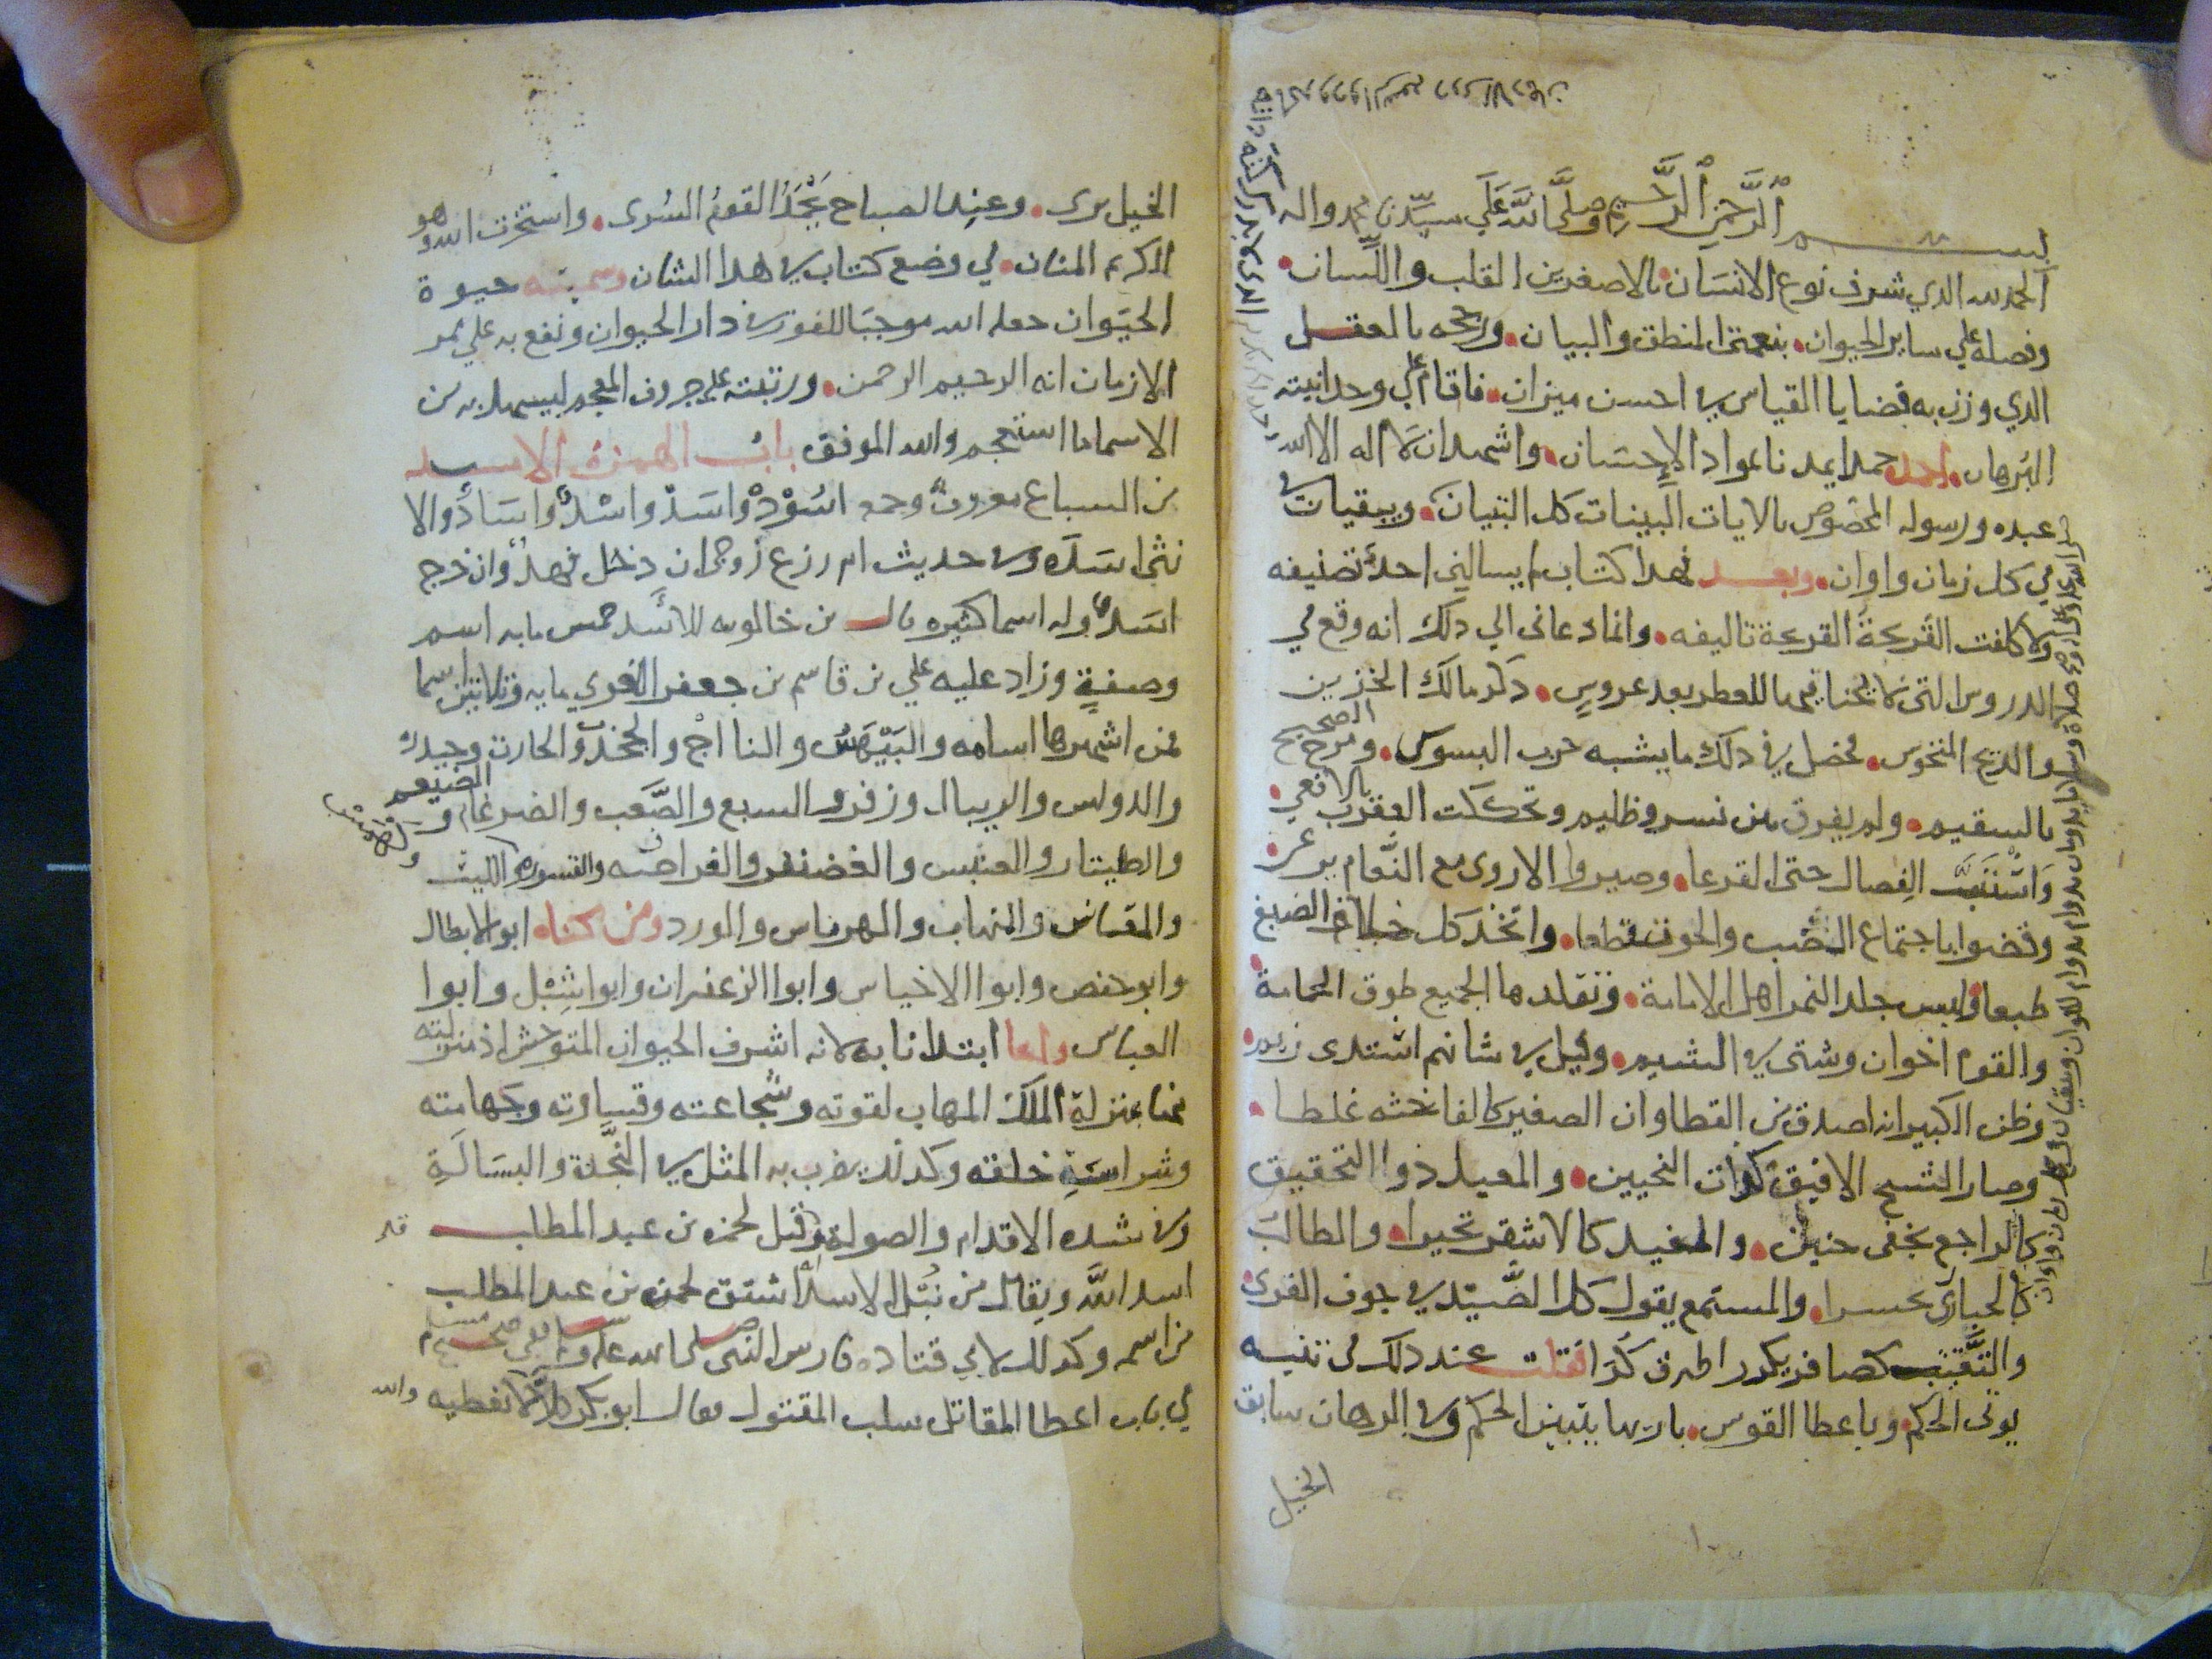 بسم الرحمن الرحيم وصلى الله على سيدنا محمد واله
الحمد لله الدي شرف نوع الانسان بالاصغرين القلب واللسان
وفضله علي ساير الحيوان بنعمتي المنطق والبيان ورجحه بالعقل
الدي وزن به قضايا القياس في احسن ميزان فاقام علي وحدانيته
البرهان احمده حمدا يمدنا بمواد الإحسان واشهد ان لا اله الا الله
عبده ورسوله المخصوص بالايات البينات كل التبيان
في كل زمان واوان وبعد فهدا كتاب لم يسالني احد تصنيفه
ولا كلفت القريحة القريحة تاليفه وانما دعاني الي دلك انه وقع في
الدروس التي لا مخبا فيها للعطر بعد عروس دكر مالك الحزين
والديخ المنحوس فحصل في دلك ما يشبه حرب البسوس ومزج الصحيح
بالسقيم ولم يفرق بين نسر وظليم وتحككت العقرب بالافعي
واستنت الفصال حتى القرعا وصيروا الاروى مع النعام ترعى
وقضوا باجتماع الضب والحوت قطعا واتخد كل اخلاق الضبع
طبعا ولبس جلد النمر اهل الامامة وتقلدها الجميع طوق الحمامة
والقوم اخوان وشتى في الشيم وقيل في شانهم اشتدى زيم
وظن الكبير انه اصدق من القطا وان الصغير كالفاخته غلطا
وصار الشيخ الافيق كدات النحيين والمعيد دوا التحقيق
كالراجع بخفي حنين والمفيد كالاشقر تحيرا والطالب
كالحباري تحسرا والمستمع يقول كل الصيد في جوف الفرى
والنقيب كصافر يكرر اطرق كرا فقلت عند دلك في بيته
يوتى الحكم وباعطا القوس باريها يتبين الحكم وفي الرهان سابق
الخيل
الخيل يرى وعند الصباح يحمد القوم السرى واستخرت الله وهو
الكريم المنان في وضع كتاب في هدا الشان وسميته حيوة
الحيوان جعله الله موجبا للفوز في دار الحيوان ونفع به علي ممر
الازمان انه الرحيم الرحمن ورتبته على حروف المعجم ليسهل به من
الاسما ما استعجم والله الموفق باب الهمزه الاسد
من السباع معروف وجمعه اسود واسد واسد واساد والا
نثى اسده وفي حديث ام زرع زوجي ان دخل فهد وان خرج
اسد وله اسما كثيره قال بن خالويه للاسد خمس مايه اسم
وصفة وزاد عليه علي بن قاسم بن جعفر اللغوي مايه وثلاثين اسما
فمن اشهرها اسامه والبيهس والنااج والجخدب والحارث وحيدره
والدواس والريبال وزفر والسبع والصعب والضرغام والضيغم
والطيثار والعنبس والغضنفر والفرافصه والقسوره والليث
والمتانس والمتهاب والهرماس والورد ومن كناه ابو الابطال
وابو حفص وابوا الاخياس وابوا الزعفران وابوا شبل وابوا
العباس وانما ابتدانا به لانه اشرف الحيوان المتوحش اذ منزلته
منها بمنزلة الملك المهاب لقوته وشجاعته وقساوته وجهامته
وشراسة خلقه وكدلك يضرب به المثل في النجدة والبسالة
وفي شده الاقدام والصولة وقيل لحمزه بن عبد المطلب
اسد الله ويقال من نبل الاسد اشتق لحمزه بن عبد المطلب
من اسمه وكدلك لابي قتاده فارس النبى صلى الله عليه وسلم ففي صحيح مسلم
في باب اعطا المقاتل سلب المقتول فقال ابو بكر كلا لا نعطيه والله